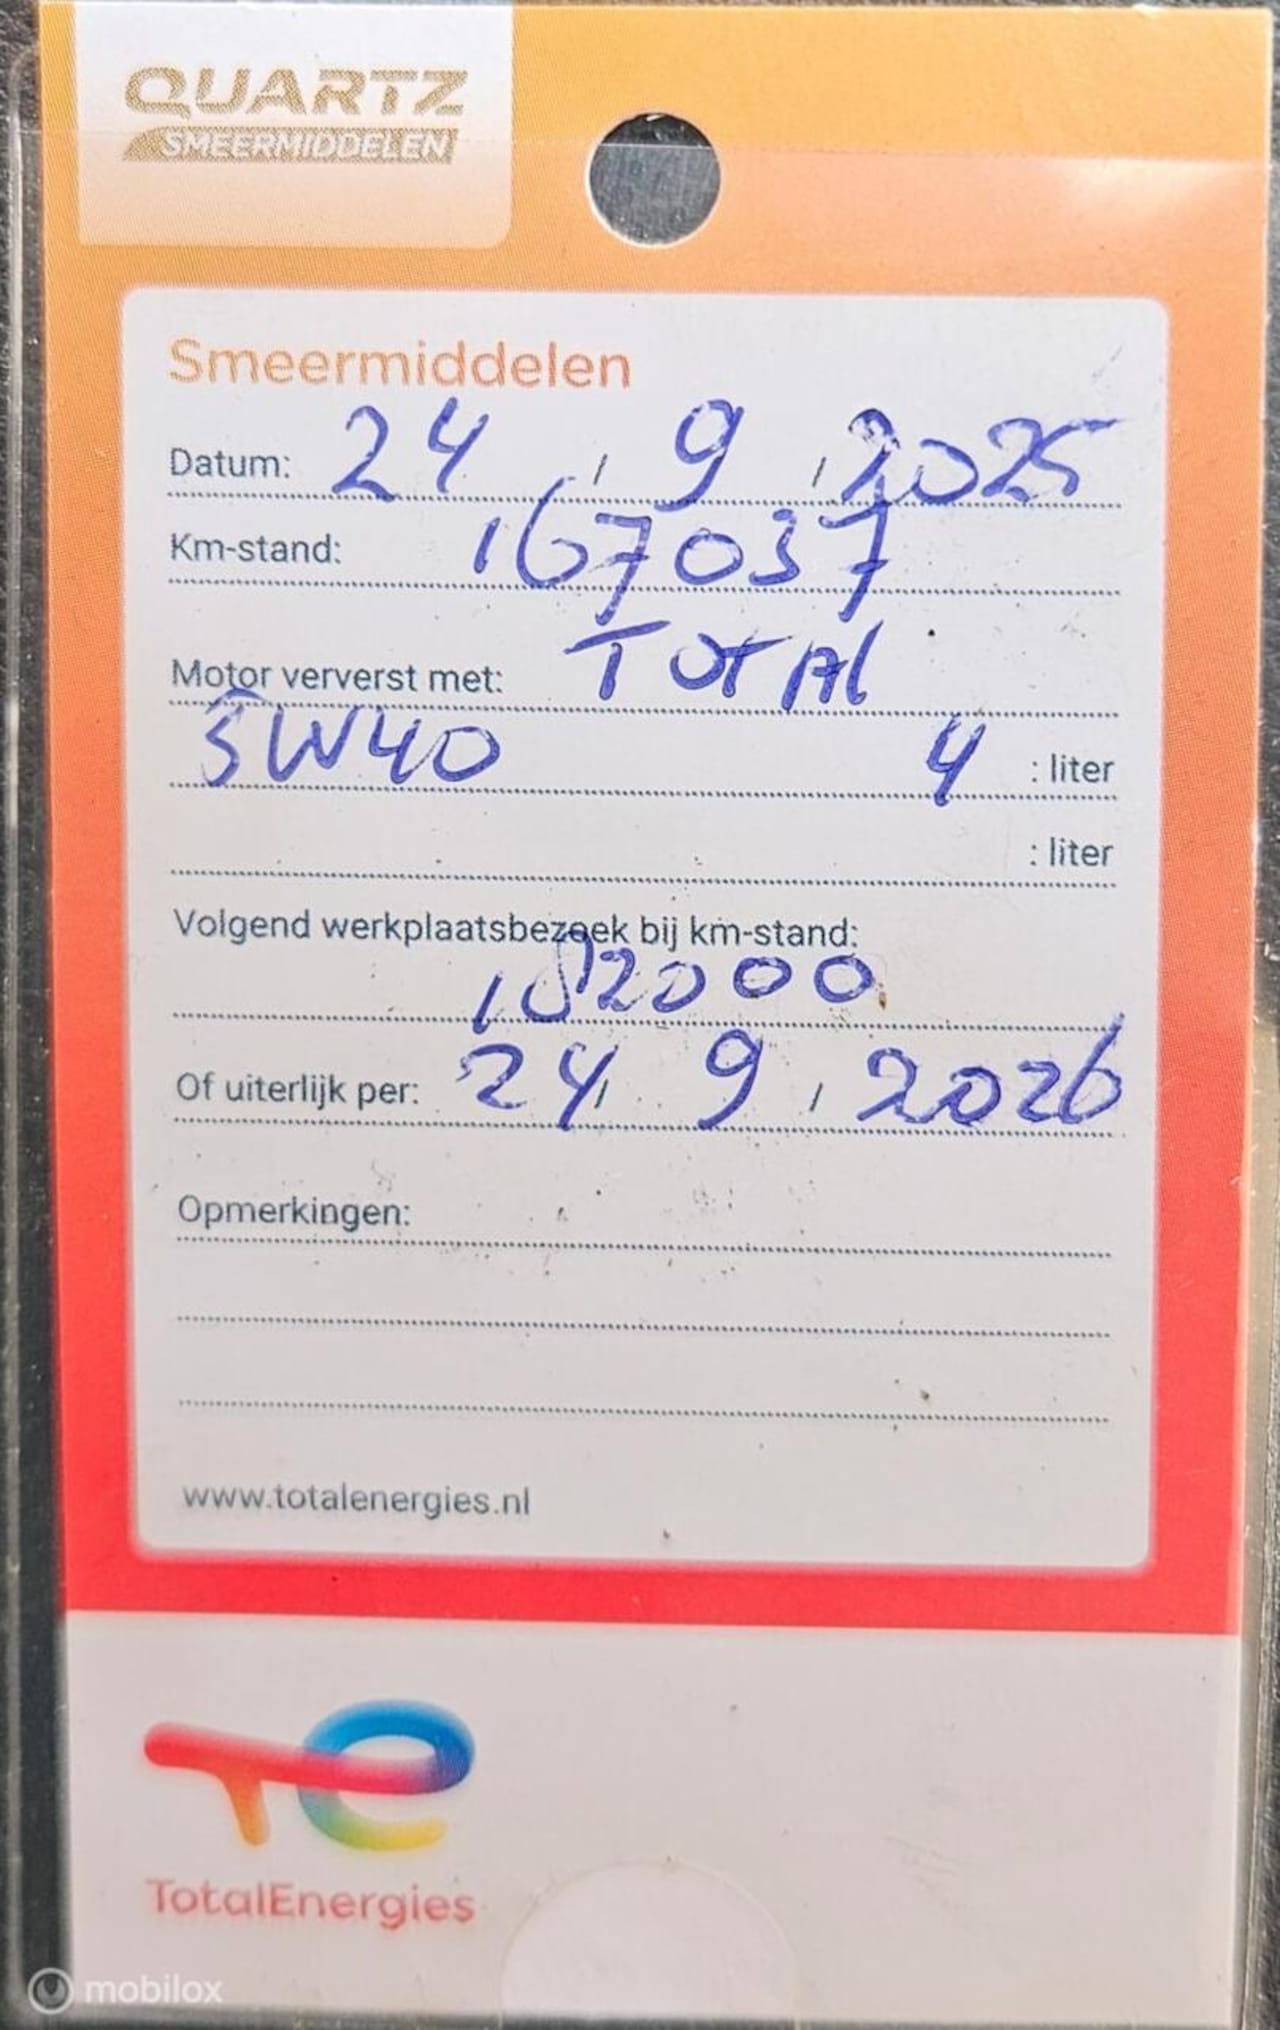 QUARTZ
SMEERMIDDELEN
Smeermiddelen
Datum: 24 / 9 / 2025
Km-stand: 167037
Motor ververst met: TOTAl
5W40 4 : liter
: liter
Volgend werkplaatsbezoek bij km-stand:
182000
Of uiterlijk per: 24 / 9 / 2026
Opmerkingen:
www.totalenergies.nl
TotalEnergies
mobilox